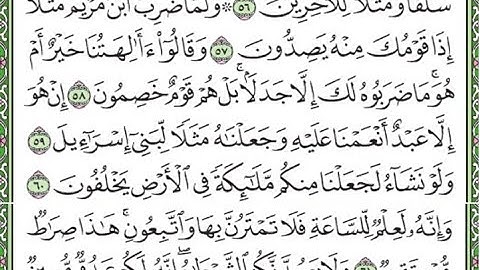 سَلَفًا وَمَثَلًا لِّلْآخِرِينَ ٥٦ ۞ وَلَمَّا ضُرِبَ ابْنُ مَرْيَمَ مَثَلًا
إِذَا قَوْمُكَ مِنْهُ يَصِدُّونَ ٥٧ وَقَالُوٓا۟ ءَأَٰلِهَتُنَا خَيْرٌ أَمْ
هُوَ ۚ مَا ضَرَبُوهُ لَكَ إِلَّا جَدَلًۢا ۚ بَلْ هُمْ قَوْمٌ خَصِمُونَ ٥٨ إِنْ هُوَ
إِلَّا عَبْدٌ أَنْعَمْنَا عَلَيْهِ وَجَعَلْنَٰهُ مَثَلًا لِّبَنِىٓ إِسْرَٰٓءِيلَ ٥٩
وَلَوْ نَشَآءُ لَجَعَلْنَا مِنكُم مَّلَٰٓئِكَةً فِى ٱلْأَرْضِ يَخْلُفُونَ ٦٠
وَإِنَّهُۥ لَعِلْمٌ لِّلسَّاعَةِ فَلَا تَمْتَرُنَّ بِهَا وَٱتَّبِعُونِ ۚ هَٰذَا صِرَٰطٌ
مُّسْتَقِيمٌ ٦١ وَلَا يَصُدَّنَّكُمُ ٱلشَّيْطَٰنُ ۖ إِنَّهُۥ لَكُمْ عَدُوٌّ مُّبِينٌ